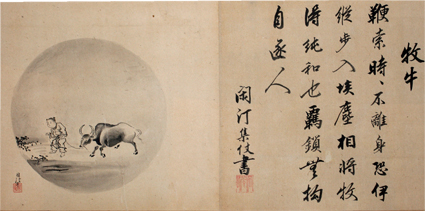 牧牛
鞭索時〻不離身恐伊
縱步入埃塵相將牧
得純和也羈鎖無拘
自逐人
閑汀集伎書